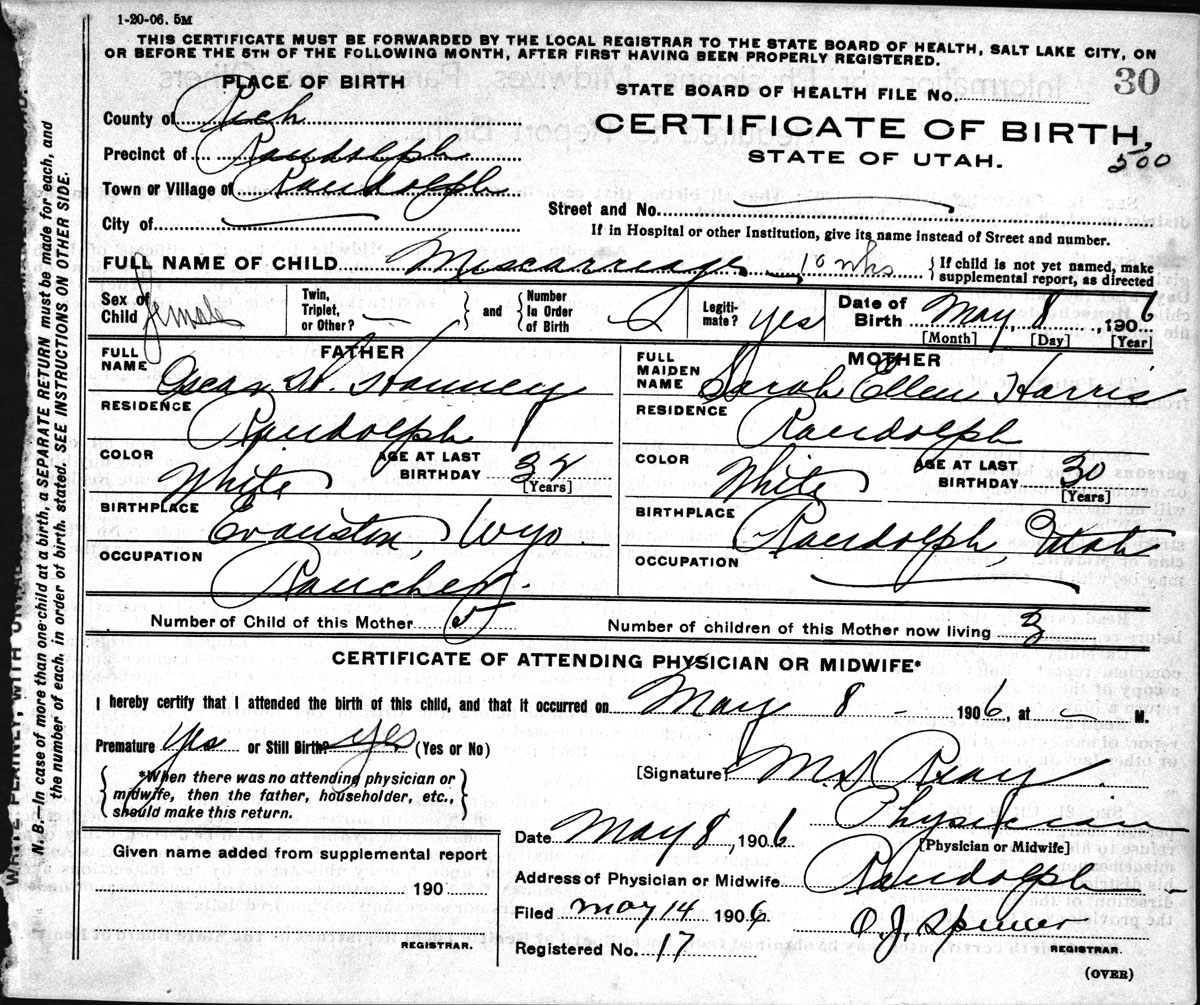 1-20-06. 5M
THIS CERTIFICATE MUST BE FORWARDED BY THE LOCAL REGISTRAR TO THE STATE BOARD OF HEALTH, SALT LAKE CITY, ON
OR BEFORE THE 5TH OF THE FOLLOWING MONTH, AFTER FIRST HAVING BEEN PROPERLY REGISTERED.
PLACE OF BIRTH
STATE BOARD OF HEALTH FILE NO. 30
County of Rich
CERTIFICATE OF BIRTH,
Precinct of Randolph
STATE OF UTAH.
500
Town or Village of Randolph
City of
Street and No.
If in Hospital or other Institution, give its name instead of Street and number.
FULL NAME OF CHILD Miscarriage 10 wks
If child is not yet named, make
supplemental report, as directed
Sex of Child female
Twin, Triplet, or Other? and Number In Order of Birth
Legiti-mate? yes
Date of Birth May 8, 1906
[Month] [Day] [Year]
FATHER
FULL NAME Oscar
RESIDENCE Randolph
COLOR White AGE AT LAST BIRTHDAY 32 [Years]
BIRTHPLACE Evanston Wyo
OCCUPATION Rancher.
MOTHER
FULL MAIDEN NAME Sarah Ellen Harris
RESIDENCE Randolph
COLOR White AGE AT LAST BIRTHDAY 30 [Years]
BIRTHPLACE Randolph, Utah
OCCUPATION
Number of Child of this Mother 5
Number of children of this Mother now living 3
CERTIFICATE OF ATTENDING PHYSICIAN OR MIDWIFE*
I hereby certify that I attended the birth of this child, and that it occurred on May 8 - 1906, at - M.
Premature yes or Still Birth? yes (Yes or No)
*When there was no attending physician or
midwife, then the father, householder, etc.,
should make this return.
[Signature]
Physician
[Physician or Midwife]
Date May 8, 1906
Address of Physician or Midwife Randolph
Filed May 14 1906
O. J. Spencer
REGISTRAR.
Registered No. 17
(OVER)
Given name added from supplemental report
190
REGISTRAR.
N. B.—In case of more than one child at a birth, a SEPARATE RETURN must be made for each, and
the number of each, in order of birth, stated. SEE INSTRUCTIONS ON OTHER SIDE.
WRITE PLAINLY, WITH